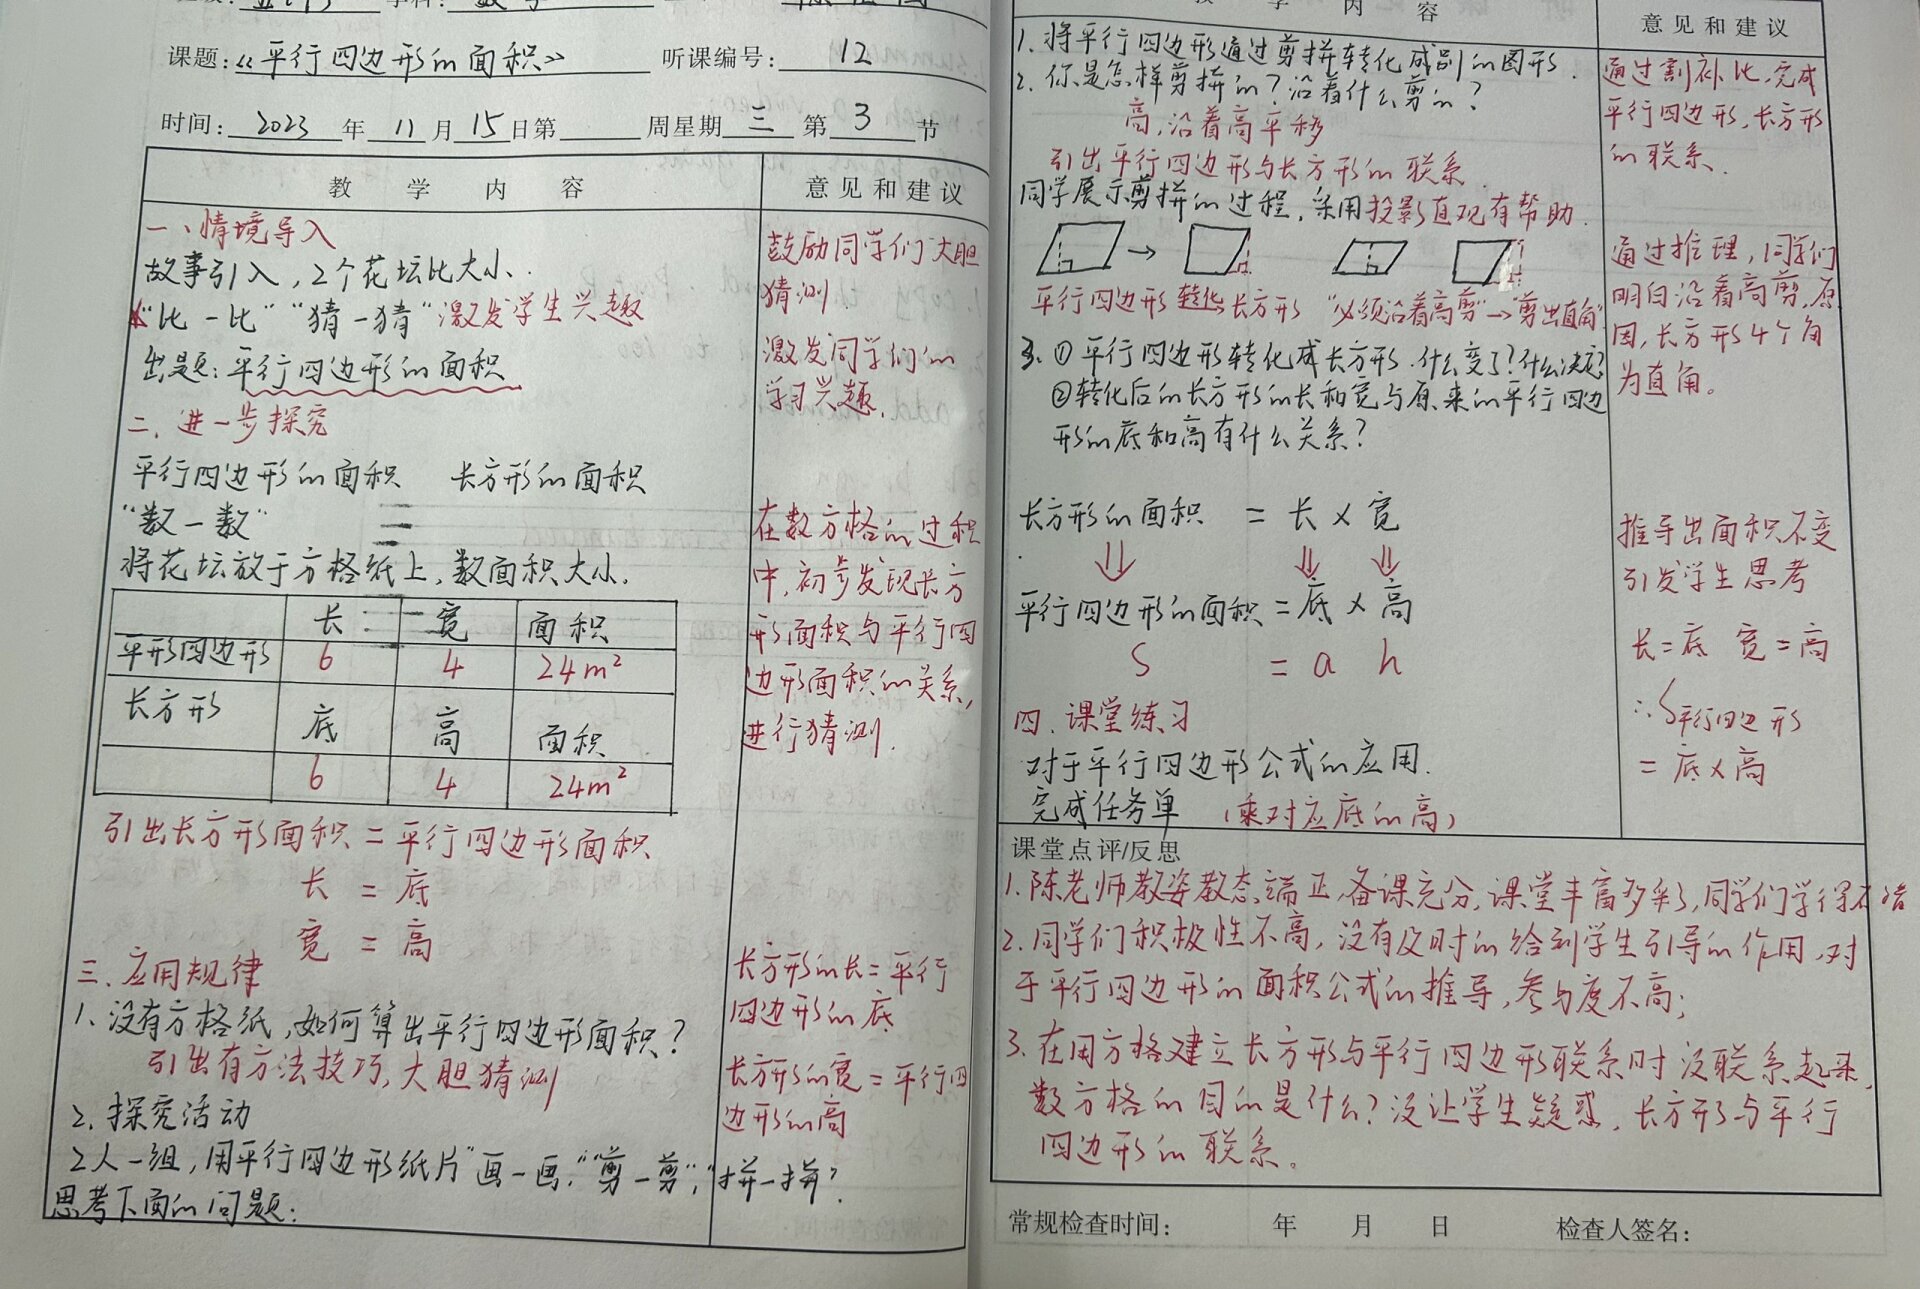 课题:《平行四边形的面积》 听课编号: 12
时间: 2023 年 11 月 15 日第 周星期 三 第 3 节
教 学 内 容 意见和建议
一、情境导入
故事引入,2个花坛比大小.
“比一比”“猜一猜”激发学生兴趣
出题:平行四边形的面积
二、进一步探究
平行四边形的面积 长方形的面积
“数一数”
将花坛放于方格纸上,数面积大小.
长 宽 面积
平形四边形 6 4 24m²
长方形 底 高 面积
6 4 24m²
引出长方形面积=平行四边形面积
长 = 底
宽 = 高
三、应用规律
1、没有方格纸,如何算出平行四边形面积?
引出有方法技巧,大胆猜测
2、探究活动
2人一组,用平行四边形纸片“画一画”,“剪一剪”,“拼一拼”
思考下面的问题:
鼓励同学们大胆
猜测
激发同学们的
学习兴趣.
在数方格的过程
中,初步发现长方
形面积与平行四
边形面积的关系,
进行猜测.
长方形的长=平行
四边形的底
长方形的宽=平行四
边形的高
教 学 内 容 意见和建议
1. 将平行四边形通过剪拼转化成别的图形.
2. 你是怎样剪拼的?沿着什么剪的?
高,沿着高平移
引出平行四边形与长方形的联系
同学展示剪拼的过程,采用投影直观有帮助.
平行四边形 转化 长方形 “必须沿着高剪”→“剪出直角”
3. ①平行四边形转化成长方形.什么变了?什么没变?
②转化后的长方形的长和宽与原来的平行四边
形的底和高有什么关系?
长方形的面积 = 长 × 宽
平行四边形的面积 = 底 × 高
S = a h
四、课堂练习
对于平行四边形公式的应用.
完成任务单 (乘对应底的高)
通过割补比,完成
平行四边形,长方形
的联系.
通过推理,同学们
明白沿着高剪,原
因,长方形4个角
为直角。
推导出面积不变
引发学生思考
长=底 宽=高
∴S平行四边形
=底×高
课堂点评/反思
1. 陈老师教姿教态端正,备课充分,课堂丰富多彩,同学们学得不错
2. 同学们积极性不高,没有及时的给到学生引导的作用,对
于平行四边形的面积公式的推导,参与度不高;
3. 在用方格建立长方形与平行四边形联系时没联系起来,
数方格的目的是什么?没让学生疑惑,长方形与平行
四边形的联系。
常规检查时间: 年 月 日 检查人签名: